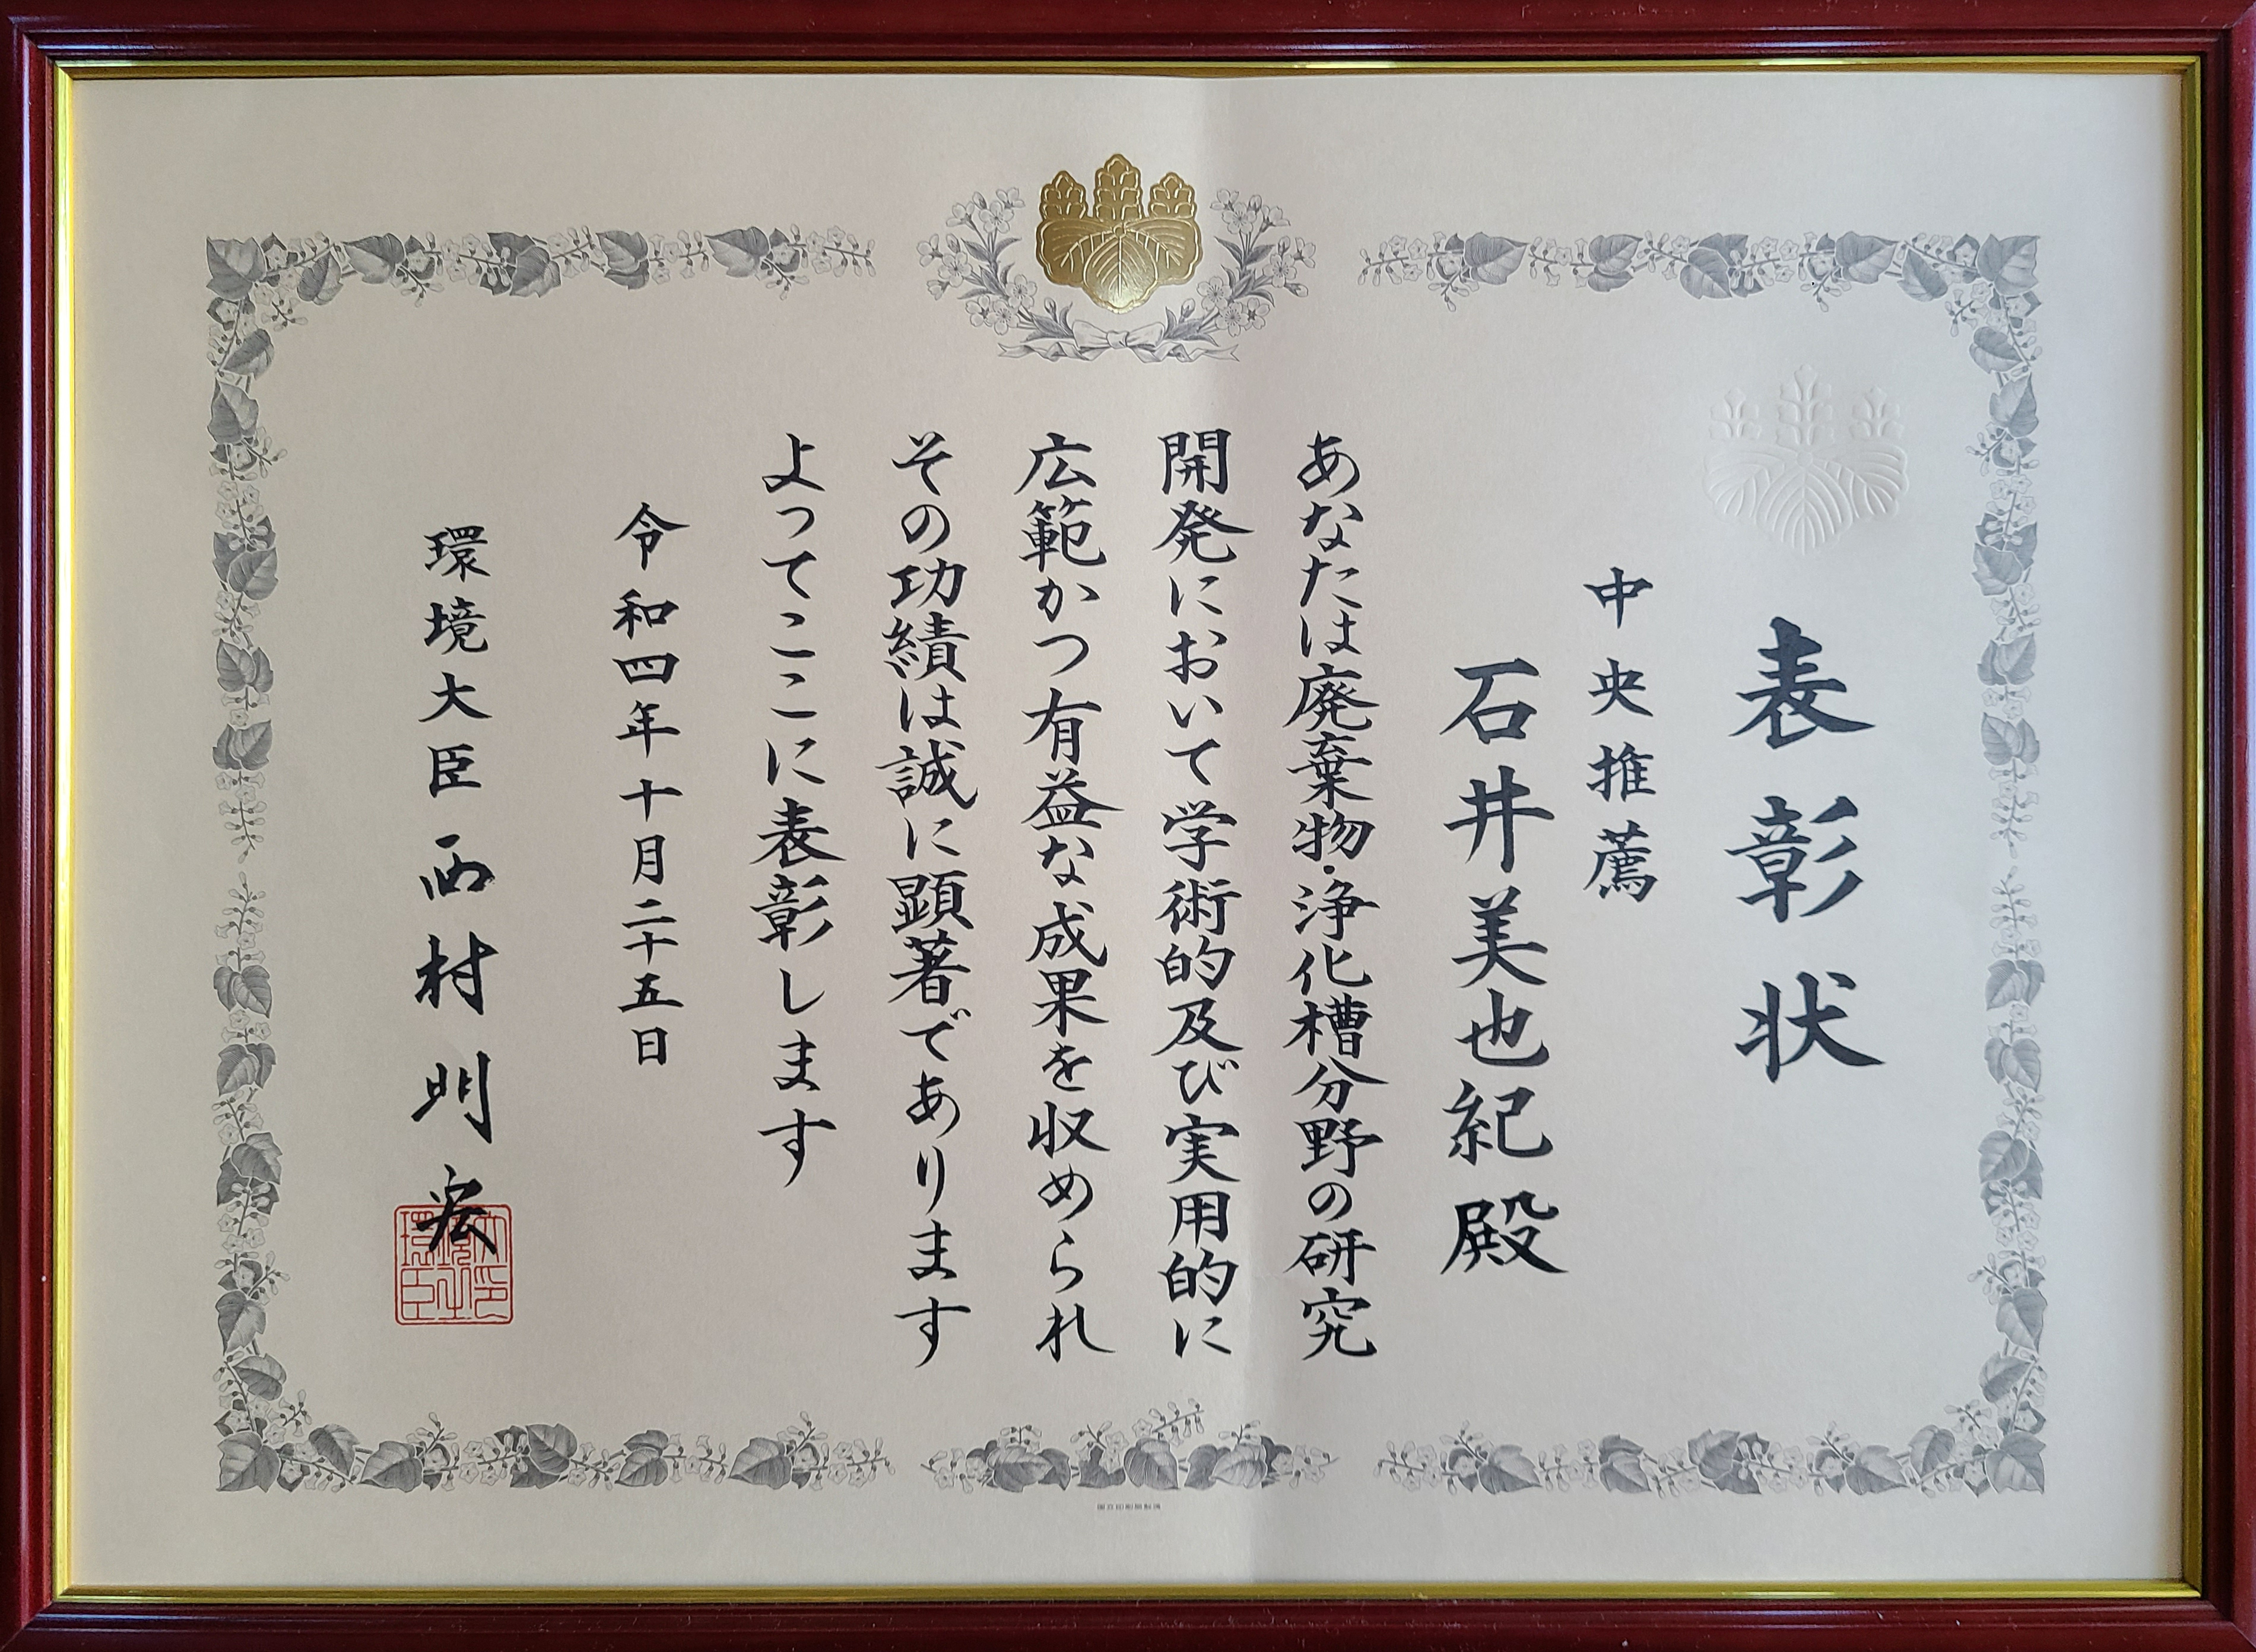 表彰状
中央推薦
石井美也紀殿
あなたは廃棄物・浄化槽分野の研究
開発において学術的及び実用的に
広範かつ有益な成果を収められ
その功績は誠に顕著であります
よってここに表彰します
令和四年十月二十五日
環境大臣 西村明宏